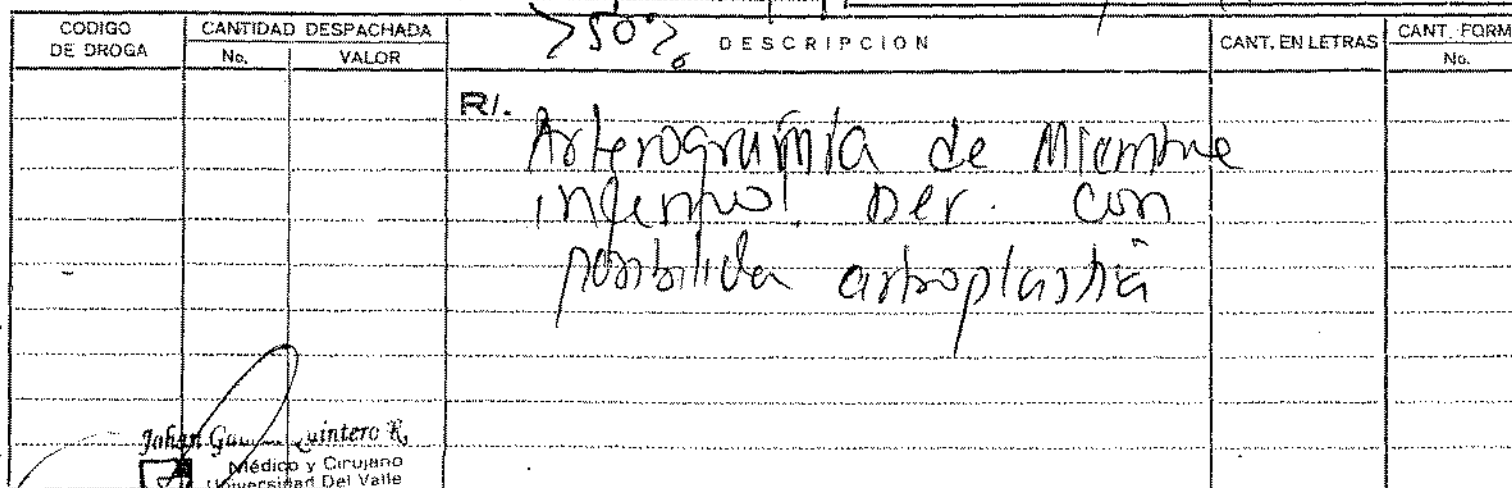 CODIGO DE DROGA
CANTIDAD DESPACHADA
No.
VALOR
>50%
DESCRIPCION
CANT. EN LETRAS
CANT. FORM
No.
R/.
Arterografia de Miembre
inferior Der. con
posibilida artroplastia
Quintero R,
Médico y Cirujano
Universidad Del Valle